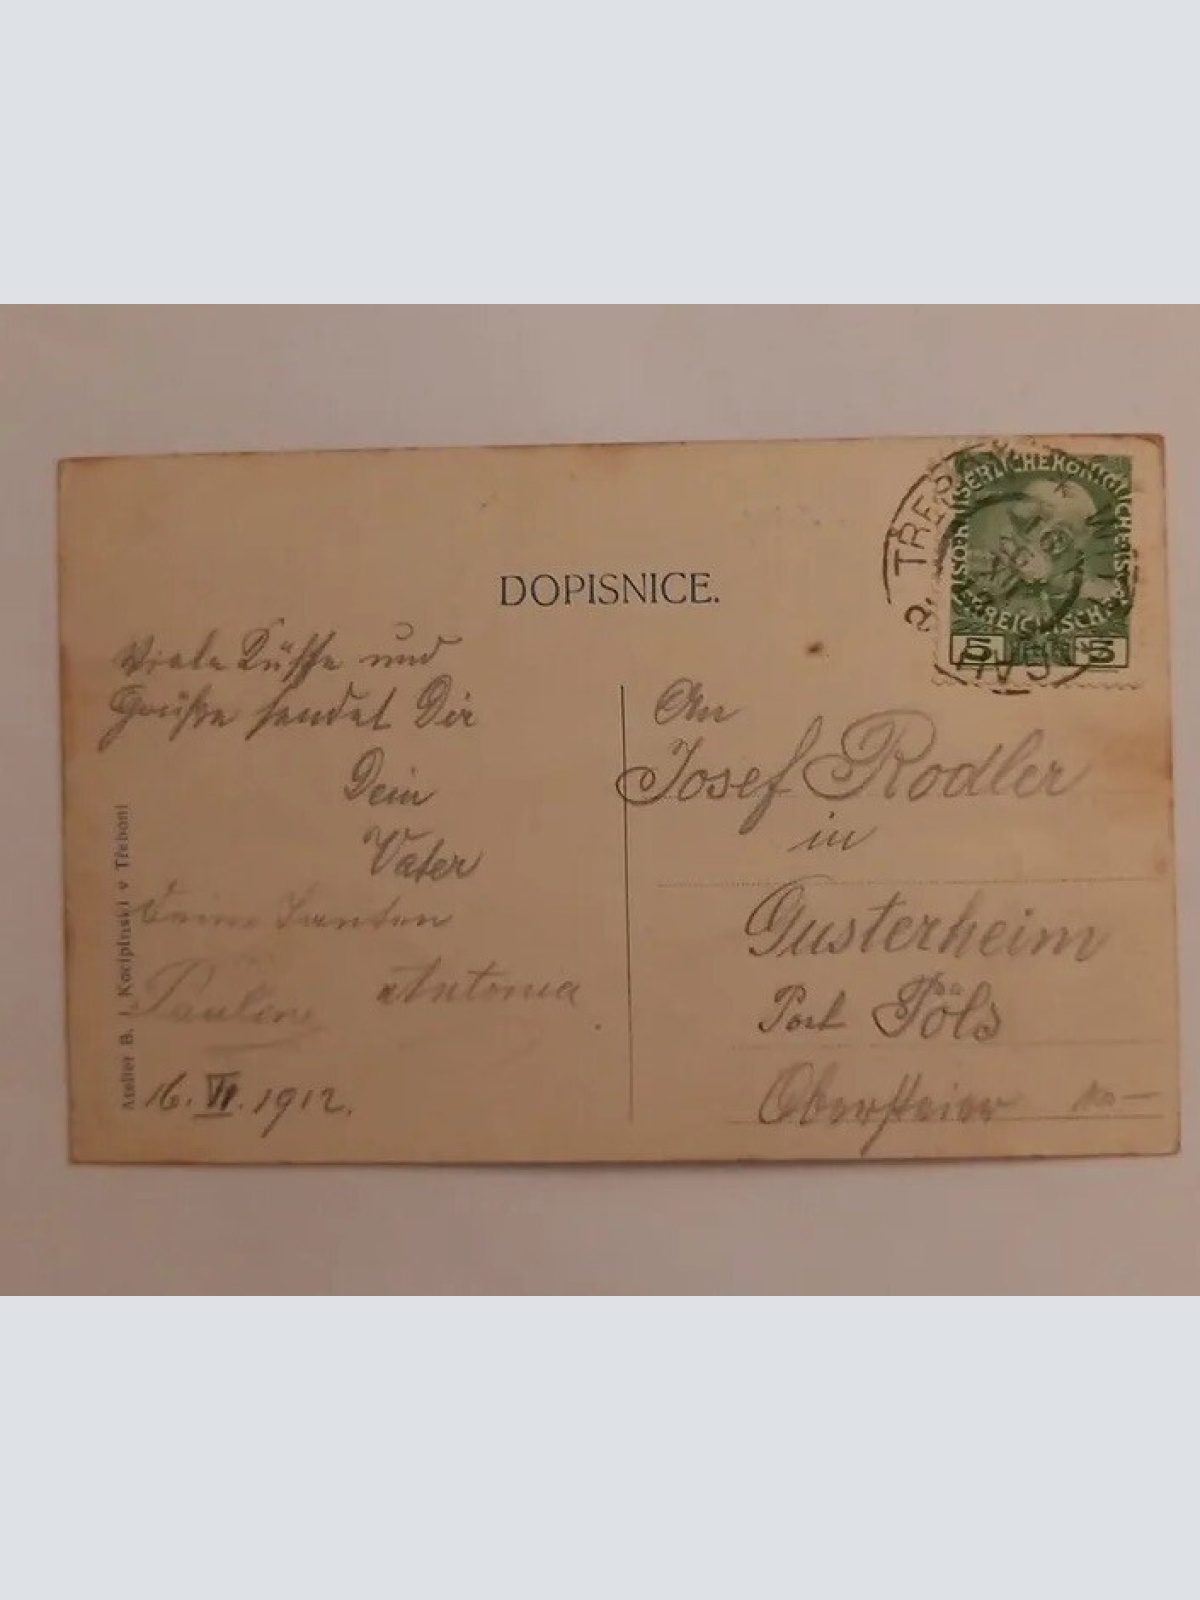 DOPISNICE.
Viele Küsse und
Grüße sendet Dir
Dein
Vater
Deine Tanten
Antonia
16. VI. 1912.
Atelier B. J. Kocipinski v Třeboni
An
Josef Rodler
in
Gusterheim
Post Pöls
Obersteier
KAISERLICHE KÖNIGLICHE ÖSTERREICHISCHE
5 HELLER 5